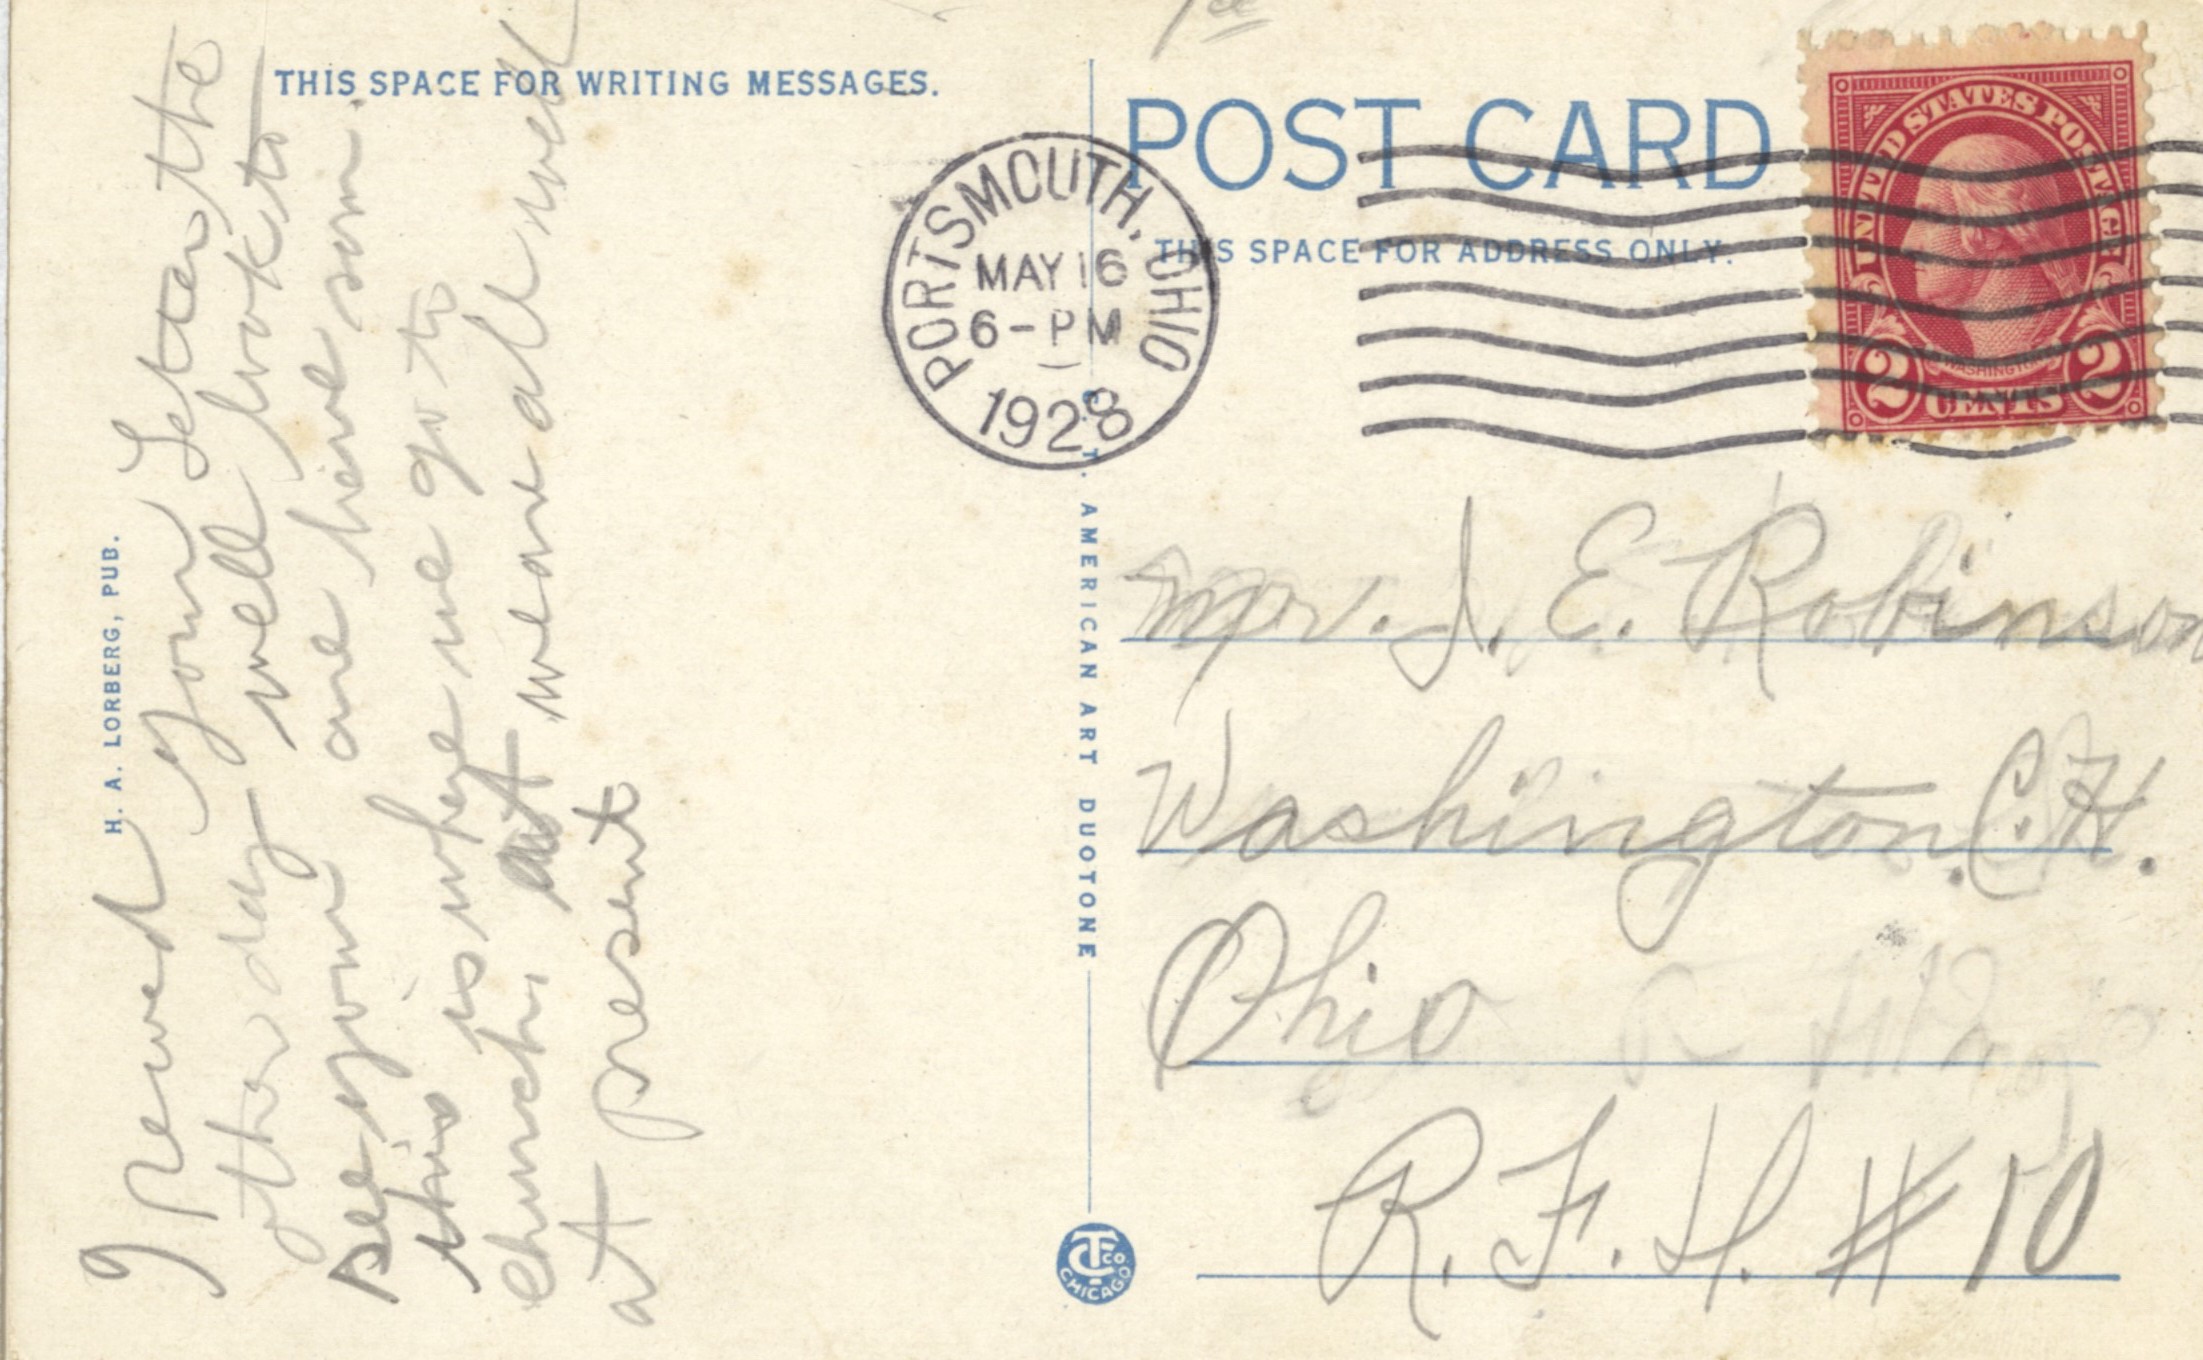 THIS SPACE FOR WRITING MESSAGES.
I Recived your Letter the
other day well looks to
see you are here soon.
this is where we go to
church, at we are all well
at present
H. A. LORBERG, PUB.
C. T. AMERICAN ART DUOTONE
POST CARD
THIS SPACE FOR ADDRESS ONLY.
PORTSMOUTH, OHIO
MAY 16
6-PM
1928
UNITED STATES POSTAGE
WASHINGTON
2 CENTS 2
Mr. J. E. Robinson
Washington. C.H.
Ohio
R. F. H. # 10
CTCO
CHICAGO